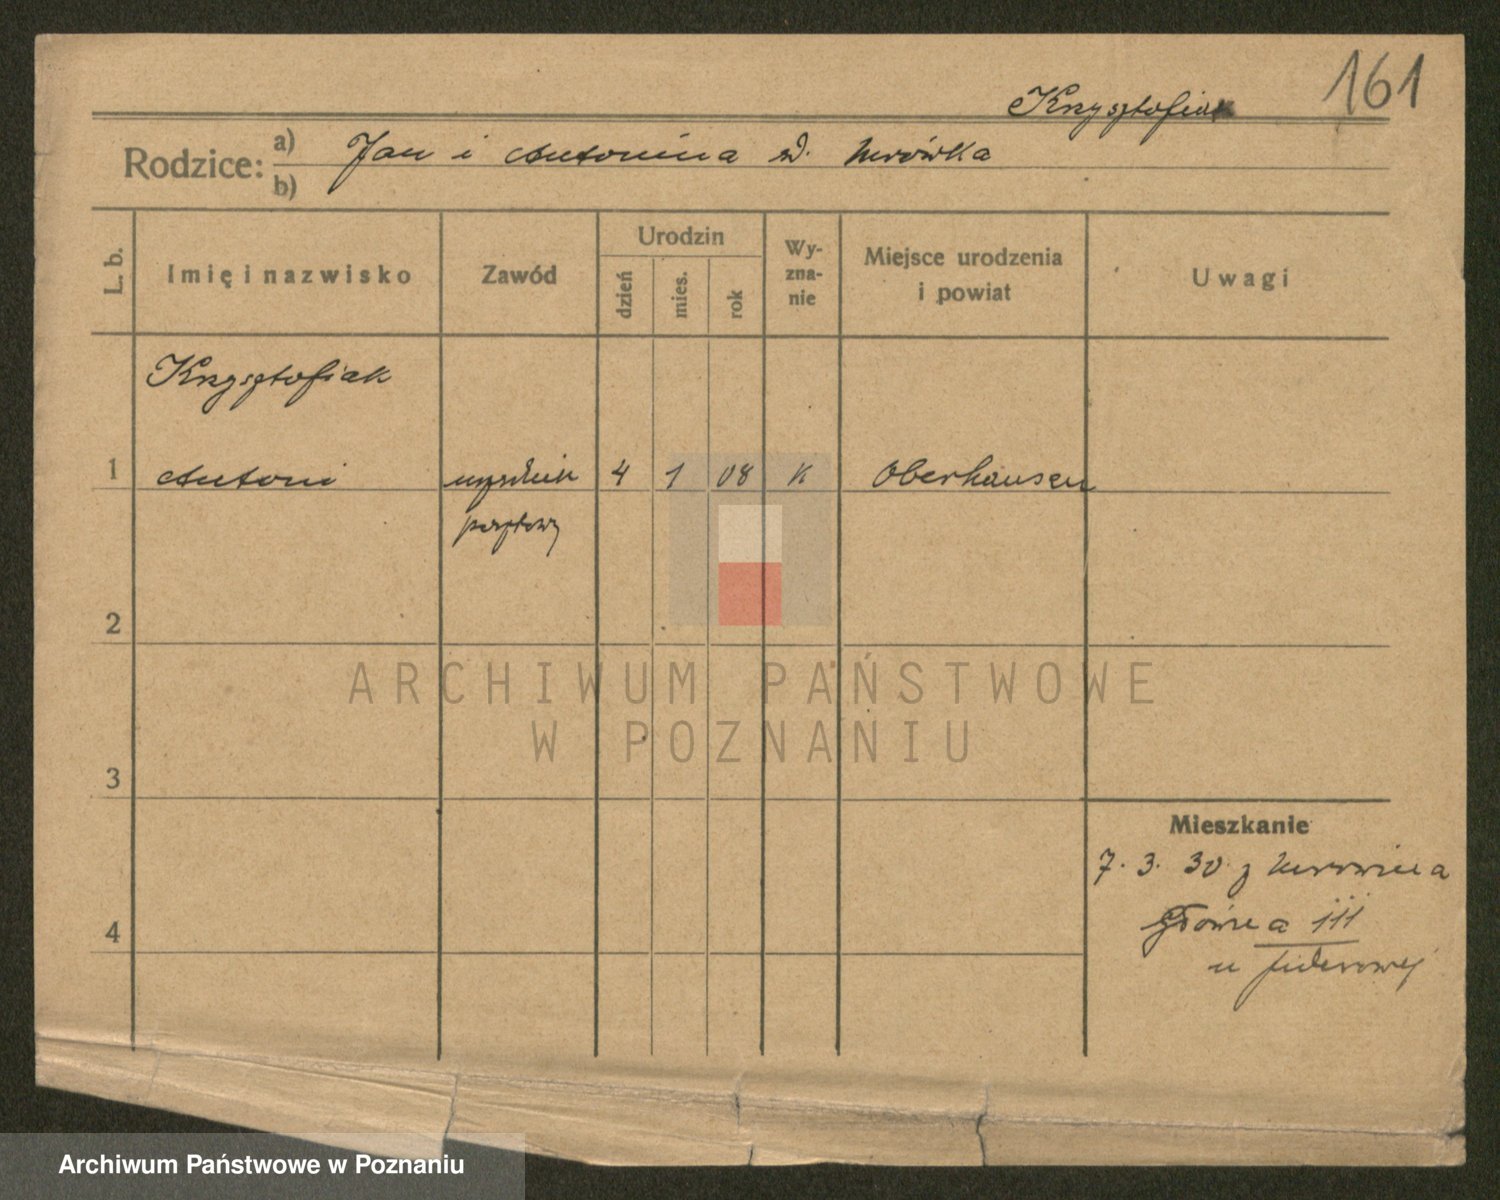 161
Krzysztofiak
Rodzice: a) Jan i Antonina zd. Mrówka
b)
L. b. Imię i nazwisko Zawód Urodzin dzień mies. rok Wyzna-nie Miejsce urodzenia i powiat Uwagi
Krzysztofiak
1 Antoni urzędnik 4 1 08 K Oberhausen
pocztowy
2
ARCHIWUM PAŃSTWOWE
W POZNANIU
3
Mieszkanie
7. 3. 30 z
4 Główna III
u
Archiwum Państwowe w Poznaniu